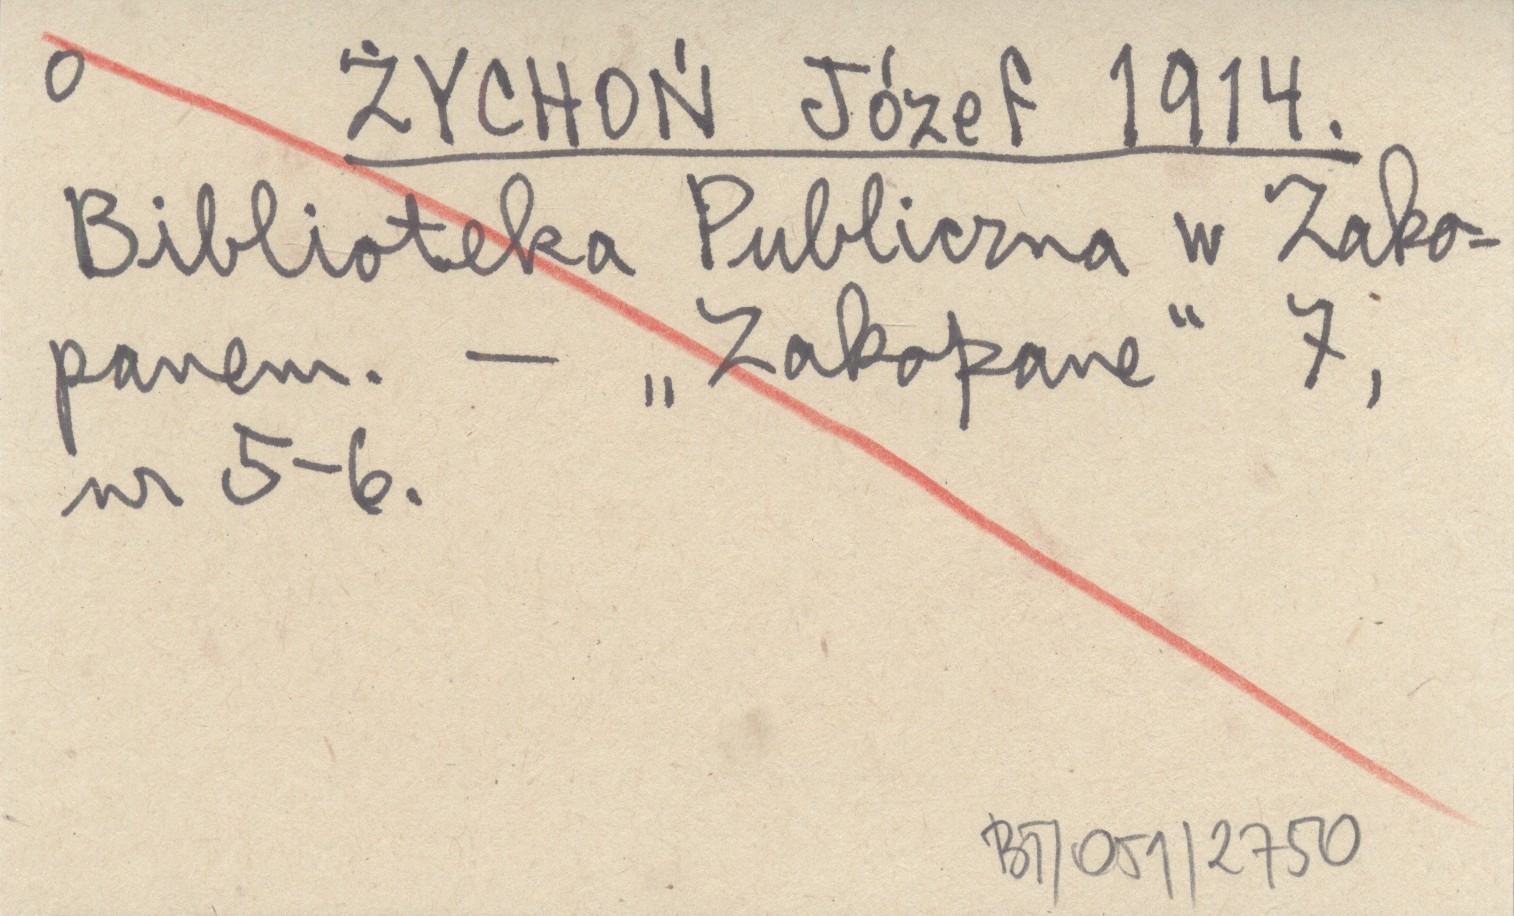 o ŻYCHOŃ Józef 1914.
Biblioteka Publiczna w Zako-
panem. — „Zakopane" 7,
nr 5-6.
BT/051/2750